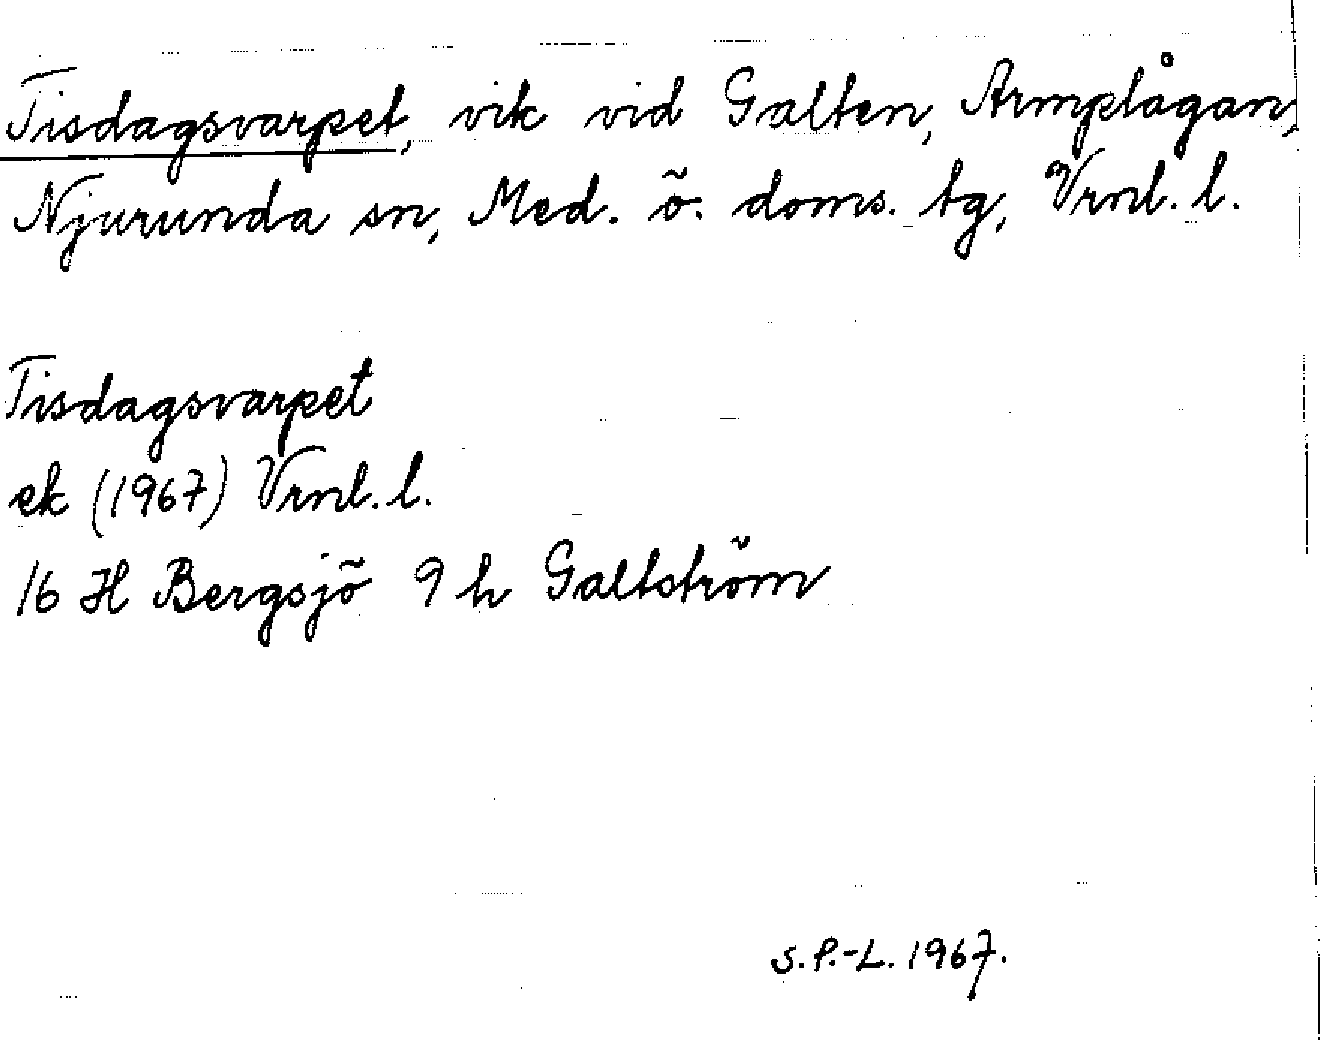 Tisdagsvarpet, vik vid Galten, Armplågan,
Njurunda sn, Med. ö. doms. tg, Vrnl. l.
Tisdagsvarpet
ek (1967) Vrnl. l.
16 H Bergsjö 9 h Galtström
S.P.-L. 1967.